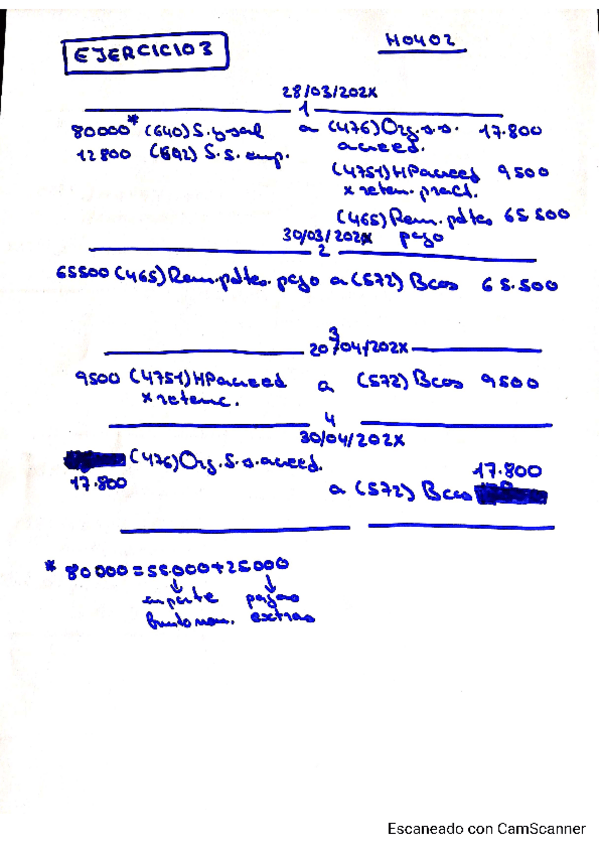 EJERCICIO 3
H0402
28/03/202X
1
80000* (640) S. y sal a (476) Org. s.s. 17.800
12800 (642) S.S. emp. acreed.
(4751) HPacreed 9500
x reten. pract.
(465) Rem. pdtes 65.500
30/03/202X pago
2
65500 (465) Rem. pdtes. pago a (572) Bcos 65.500
3
20/04/202X
9500 (4751) HPacreed a (572) Bcos 9500
x retenc.
4
30/04/202X
(476) Org. S.s. acreed. 17.800
17.800
a (572) Bcos
* 80000 = 55.000 + 25000
importe pagas
bruto nom. extras
Escaneado con CamScanner